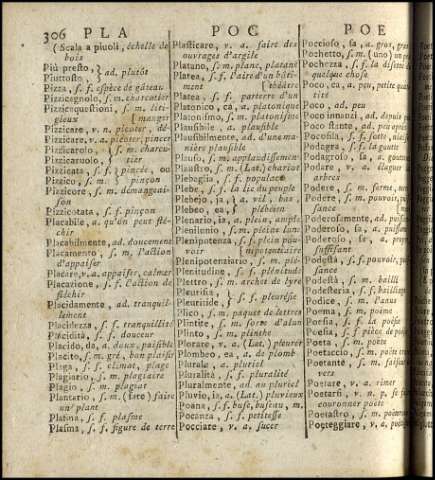 306 PLA POC POE
(Scala a piuoli, échelle de
bois
Più presto,
Piuttosto, } ad. plutôt
Pizza, s. f. espèce de gâteau
Pizzicagnolo, s. m. charcutier
Pizzicare, v. a. pincer
Pizzicarolo,
Pizzicaruolo,
Pizzicata, s. f. pincée, ou
Pizzico, s. m. pinçon
Pizzicore, s. m. démangeai-
son
Pizzicotata, s. f. pinçon
Placabile, a. qu'on peut flé-
chir
Placabilmente, ad. doucement
Placamento, s. m. l'action
d'appaiser
Placare, v. a. appaiser, calmer
Placazione, s. f. l'action de
fléchir
Placidamente, ad. tranquil-
lement
Placidezza, s. f. tranquillité
Placidità, s. f. douceur
Placido, da, a. doux, paisible
Placito, s. m. gré, bon plaisir
Plaga, s. f. climat, plage
Plagiario, s. m. plagiaire
Plagio, s. m. plagiat
Plantario, s. m. faire
un' plant
Platina, s. f. platine
Plasma, s. f. figure de terre
Plasticare, v. a. faire des
ouvrages d'argile
Platano, s. m. plane, platane
Platea, s. f. l'aire d'un bâti-
ment
Platea, s. f. parterre d'un
Platonico, ca, a. platonique
Platonismo, s. m. platonisme
Plausibile, a. plausible
Plausibilmente, ad. d'une ma-
nière plausible
Plauso, s. m. applaudissement
Plaustro, s. m. (Lat.) chariot
Plebaglia, s. f. populace
Plebe, s. f. la lie du peuple
Plebejo, ja, } a. vil, bas,
Plebeo, ea, } plébéien
Plenario, ia, a. plein, ample
Plenilunio, s. m. pleine lune
Plenipotenza, s. f. plein pou-
voir
Plenipotenziario, s. m. plé-
Plenitudine, s. f. plénitude
Plettro, s. m. archet de lyre
Pleurisia,
Pleuritide, } s. f. pleurésie
Plico, s. m. paquet de lettres
Plintite, s. m. sorte d'alun
Plinto, s. m. plinthe
Plorare, v. a. (Lat.) pleurer
Plombeo, ea, a. de plomb
Plurale, a. pluriel
Pluralità, s. f. pluralité
Pluralmente, ad. au pluriel
Pluvio, ia, a. (Lat.) pluvieux
Poana, s. f. buse, buseau, m.
Pocanza, s. f. petitesse
Pocciare, v. a. sucer
Poccioso, sa, a. gros, gras
Pochetto, s. m. (uno) un
Pochezza, s. f. la disette de
quelque chose
Poco, ca, a. peu, petite quan-
tité
Poco, ad. peu
Poco innanzi, ad. depuis peu
Poco stante, ad. peu après
Podagra, s. f. la goutte
Podagroso, sa, a. goutteux
Podare, v. a. élaguer les
arbres
Podere, s. m. ferme, terre
Podere, s. m. pouvoir, puis-
sance
Poderosamente, ad. puissam-
Poderoso, sa, a. propre,
suffisant
Podestà, s. f. pouvoir, puis-
sance
Podestà, s. m. bailli
Podesteria, s. f. bailliage
Podice, s. m. l'anus
Poema, s. m. poëme
Poesia, s. f. la poésie
Poesia, s. f. pièce de poésie
Poeta, s. m. poëte
Poetaccio, s. m. poëte crotté
Poetante, s. m. faiseur de
vers
Poetare, v. a. rimer
Poetarsi, v. n. p. se faire
couronner poëte
Poetastro, s. m.
Poeteggiare, v. a.